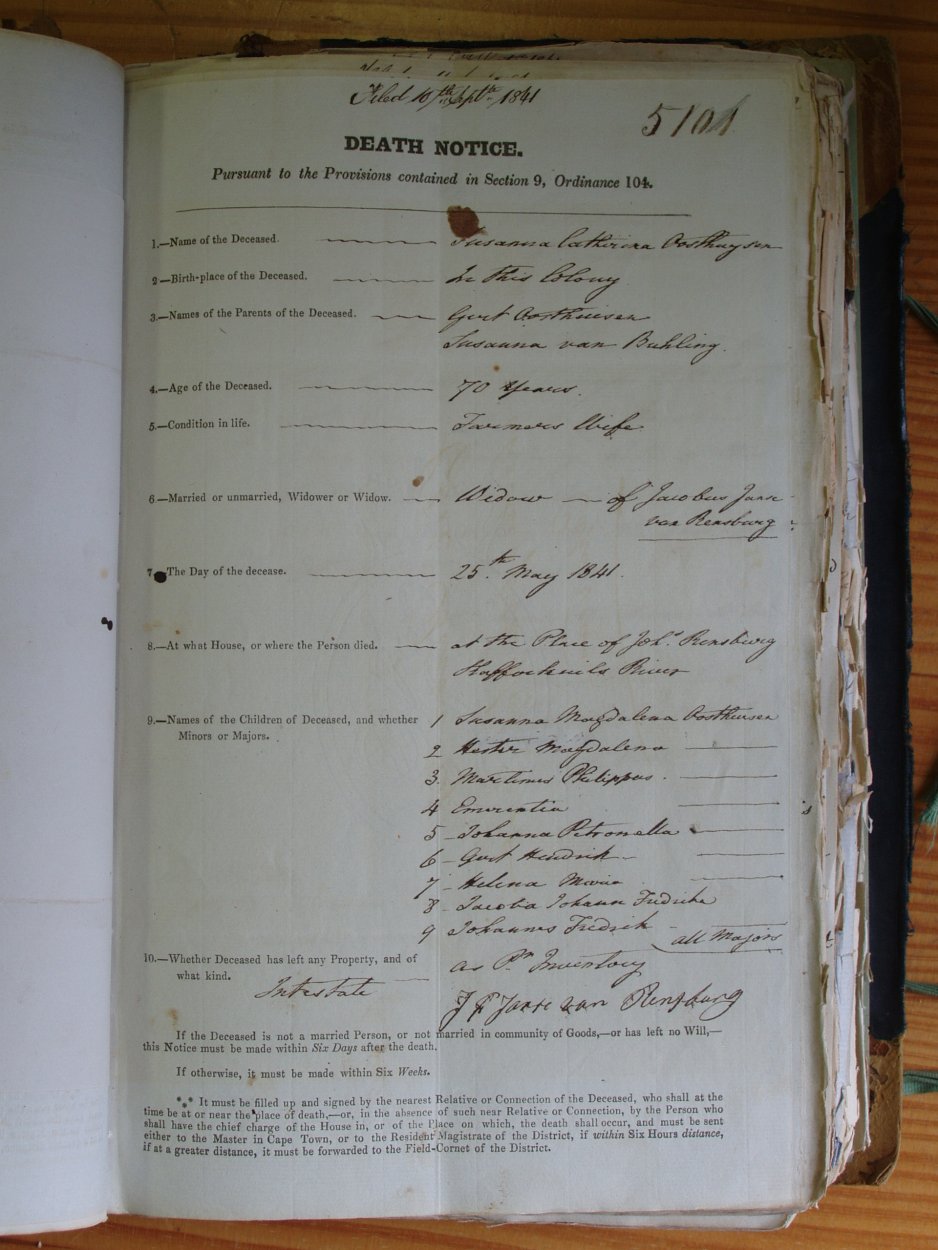 Filed 10th Septr 1841
5101
DEATH NOTICE.
Pursuant to the Provisions contained in Section 9, Ordinance 104.
1.—Name of the Deceased. Susanna Catherina Oosthuysen
2—Birth-place of the Deceased. In this Colony
3.—Names of the Parents of the Deceased. Gert Oosthuisen
Susanna van Buhling.
4.—Age of the Deceased. 70 Years.
5.—Condition in life. Farmers Wife
6—Married or unmarried, Widower or Widow. Widow — of Jacobus Janse
van Rensburg
7.—The Day of the decease. 25th May 1841.
8.—At what House, or where the Person died. at the Place of Johs. Rensburg
Kafferkuils River
9.—Names of the Children of Deceased, and whether 1 Susanna Magdalena Oosthuisen
Minors or Majors.
2 Hester Magdalena
3. Martinus Philippus.
4 Emerentia
5 Johanna Petronella
6 Gert Hendrik
7 Helena Maria
8 Jacoba Johanna Fredrika
9 Johannes Fredrik all Majors
10.—Whether Deceased has left any Property, and of as Pr Inventory
what kind.
Intestate
J F Janse van Rensburg
If the Deceased is not a married Person, or not married in community of Goods,—or has left no Will,—
this Notice must be made within Six Days after the death.
If otherwise, it must be made within Six Weeks.
*** It must be filled up and signed by the nearest Relative or Connection of the Deceased, who shall at the
time be at or near the place of death,—or, in the absence of such near Relative or Connection, by the Person who
shall have the chief charge of the House in, or of the Place on which, the death shall occur, and must be sent
either to the Master in Cape Town, or to the Resident Magistrate of the District, if within Six Hours distance,
if at a greater distance, it must be forwarded to the Field-Cornet of the District.